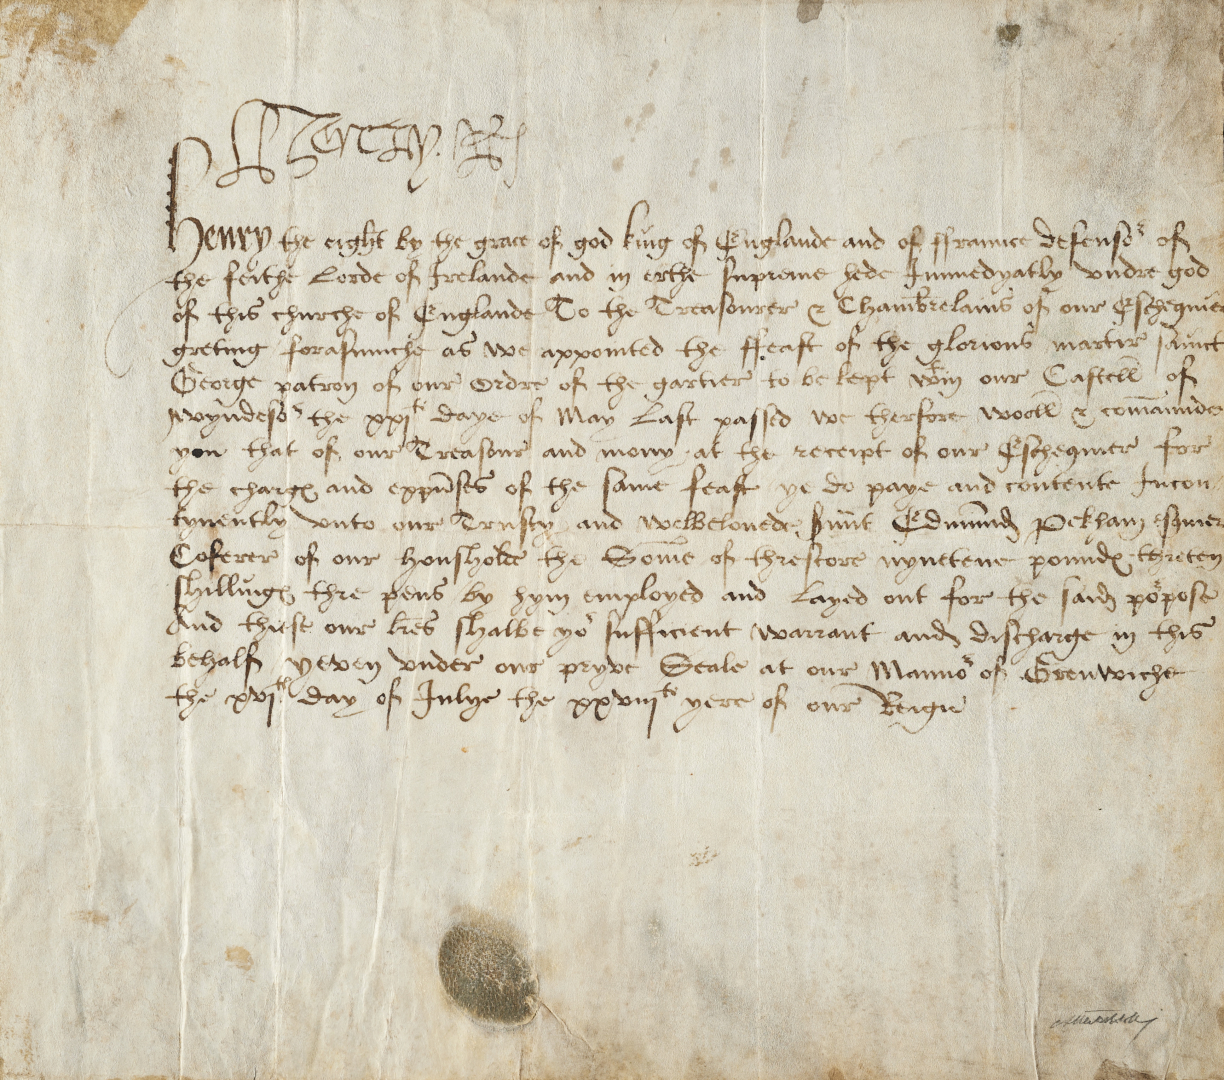 Henry R
Henry the eight by the grace of god king of Englande and of ffraunce defensor of
the feithe Lorde of Irelande and in erthe supreme hede Immedyatly undre god
of this churche of Englande To the Treasourer & Chambrelains of our Eschequier
greting forasmuche as we appointed the ffeast of the glorious martir saint
George patron of our Ordre of the gartier to be kept wtin our Castell of
wyndesor the xxjti daye of May Last passed we therfore wooll & comaunde
you that of our Treasure and mony at the receipt of our Eschequier for
the charges and expenses of the same feast ye do paye and contente Incon-
tynently unto our Trusty and welbeloued sruñt Edmund Pekham esquier
Coferer of our housholde the Some of threscore nynetene poundes threten
shillinges thre pens by hym employed and Layed out for the said porpose
And thiese our lres shalbe yor sufficient warrant and discharge in this
behalf yeven under our pryve Seale at our Manno of Grenwiche
the xvjth day of Julye the xxviijti yere of our Reign